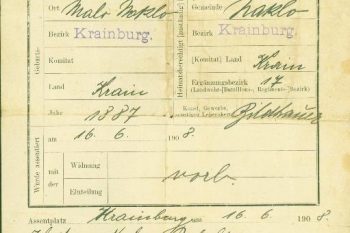 Ort Malo Naklo
Gemeinde Naklo
Bezirk Krainburg.
Bezirk Krainburg.
Komitat
(Komitat) Land Krain
Land Krain
Ergänzungsbezirk 17
(Landwehr-[Bataillons-, Regiments-]Bezirk)
Geburts-
Heimatsberechtigt (zuständig)
Jahr 1887
Kunst, Gewerbe,
sonstiger Lebensberuf Bildhauer
Wurde assentiert
am 16. 6. 1908.
mit der
Widmung
Einteilung
vorb.
Assentplatz Krainburg am 16. 6. 1908.